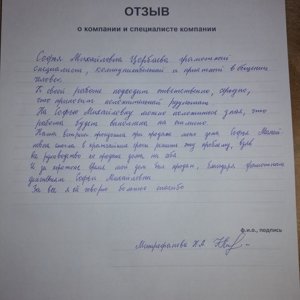 ОТЗЫВ
о компании и специалисте компании
Софья Михайловна грамотный
специалист, коммуникабельный и приятный в общении
человек.
К своей работе подходит ответственно,
что приносит положительный результат
На Софью Михайловну можно положиться зная, что
работа будет выполнена на отлично
Наша встреча произошла при продаже моего дома. Софья Михай
ловна смогла в кратчайшие сроки решить эту проблему, взяв
руководство по продаже дома, на себя
И за короткое время мой дом был продан, благодаря грамотным
действиям Софьи Михайловны
За что я ей говорю большое спасибо
ф.и.о., подпись
Митрофанова Н.А.